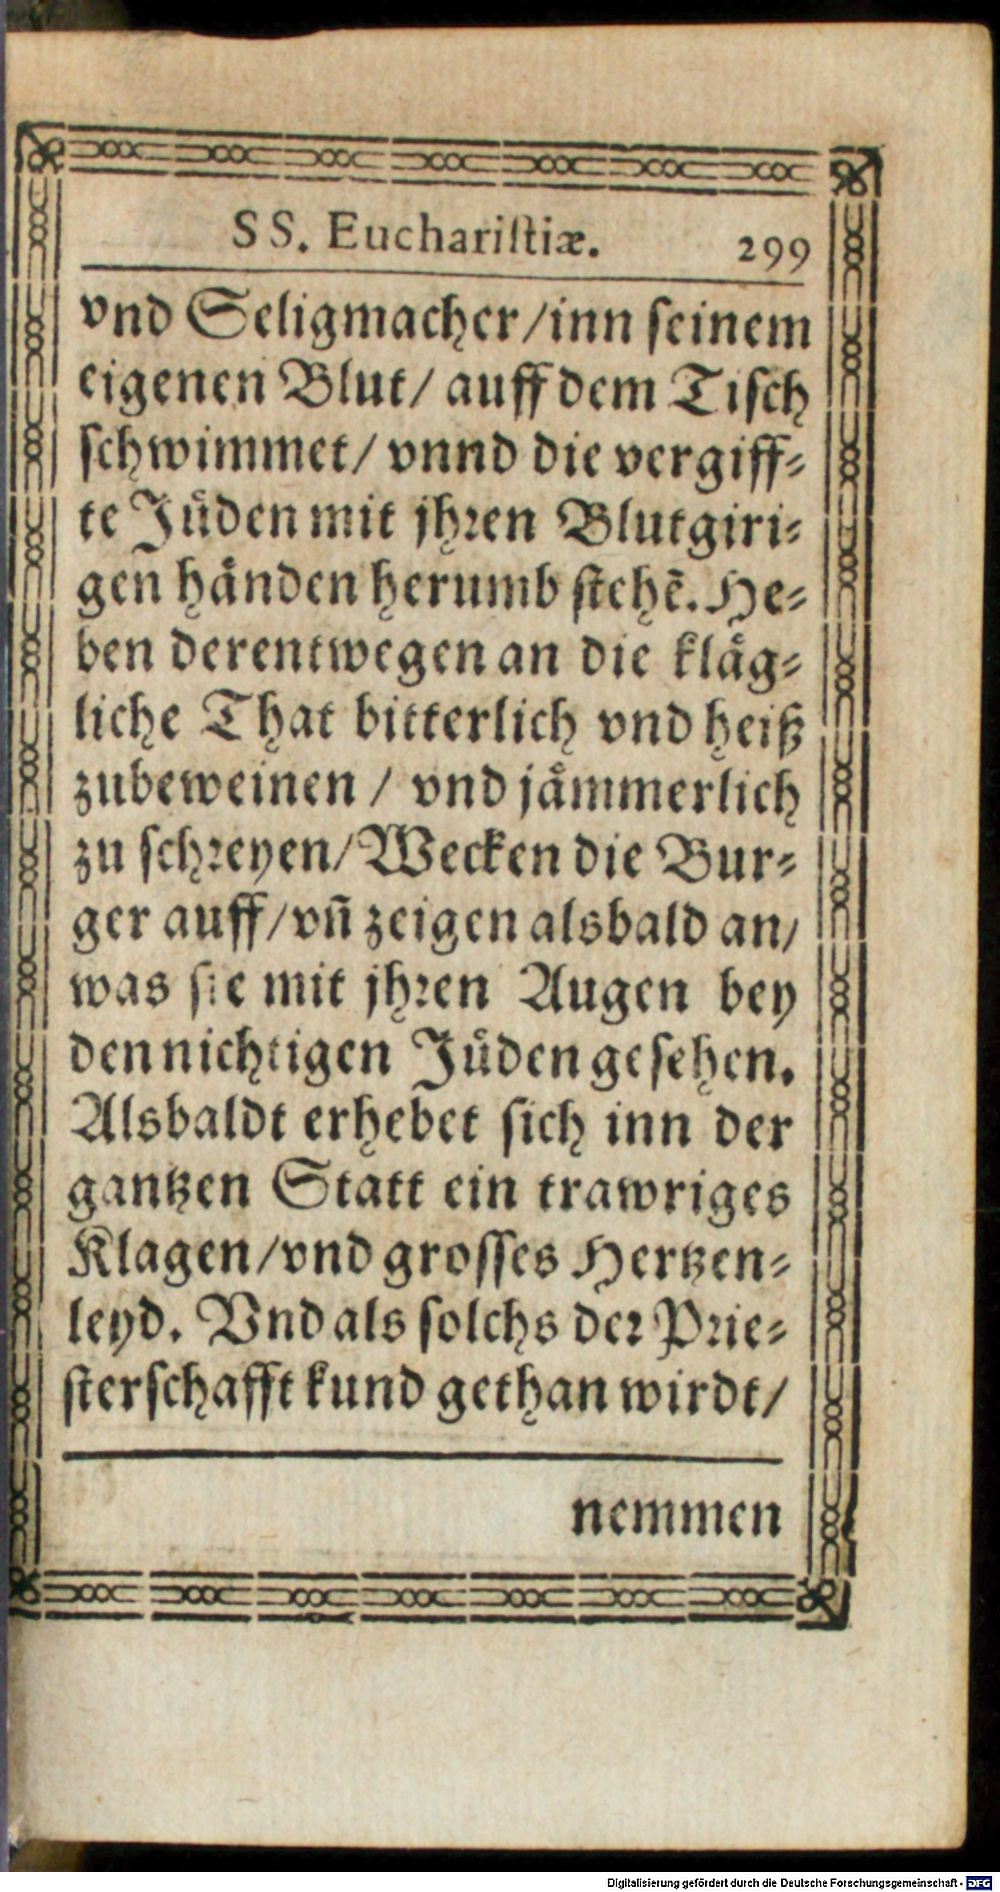 SS. Euchariſtiæ. 299
vnd Seligmacher/inn ſeinem
eigenen Blut/ auff dem Tiſch
ſchwimmet/ vnnd die vergiff⸗
te Juͤden mit jhꝛen Blutgiri⸗
gen haͤnden herumb ſtehẽ. He⸗
ben derentwegen an die klaͤg⸗
liche That bitterlich vnd heiß
zubeweinen / vnd jaͤmmerlich
zu ſchꝛeyen/Wecken die Bur⸗
ger auff/vñ zeigen alsbald an/
was ſie mit jhꝛen Augen bey
den nichtigen Juͤden geſehen.
Alsbaldt erhebet ſich inn der
gantzen Statt ein trawriges
Klagen/vnd groſſes Hertzen⸗
leyd. Vnd als ſolchs deꝛ Pꝛie⸗
ſterſchafft kund gethan wirdt/
nemmen
Digitalisierung gefördert durch die Deutsche Forschungsgemeinschaft - DFG